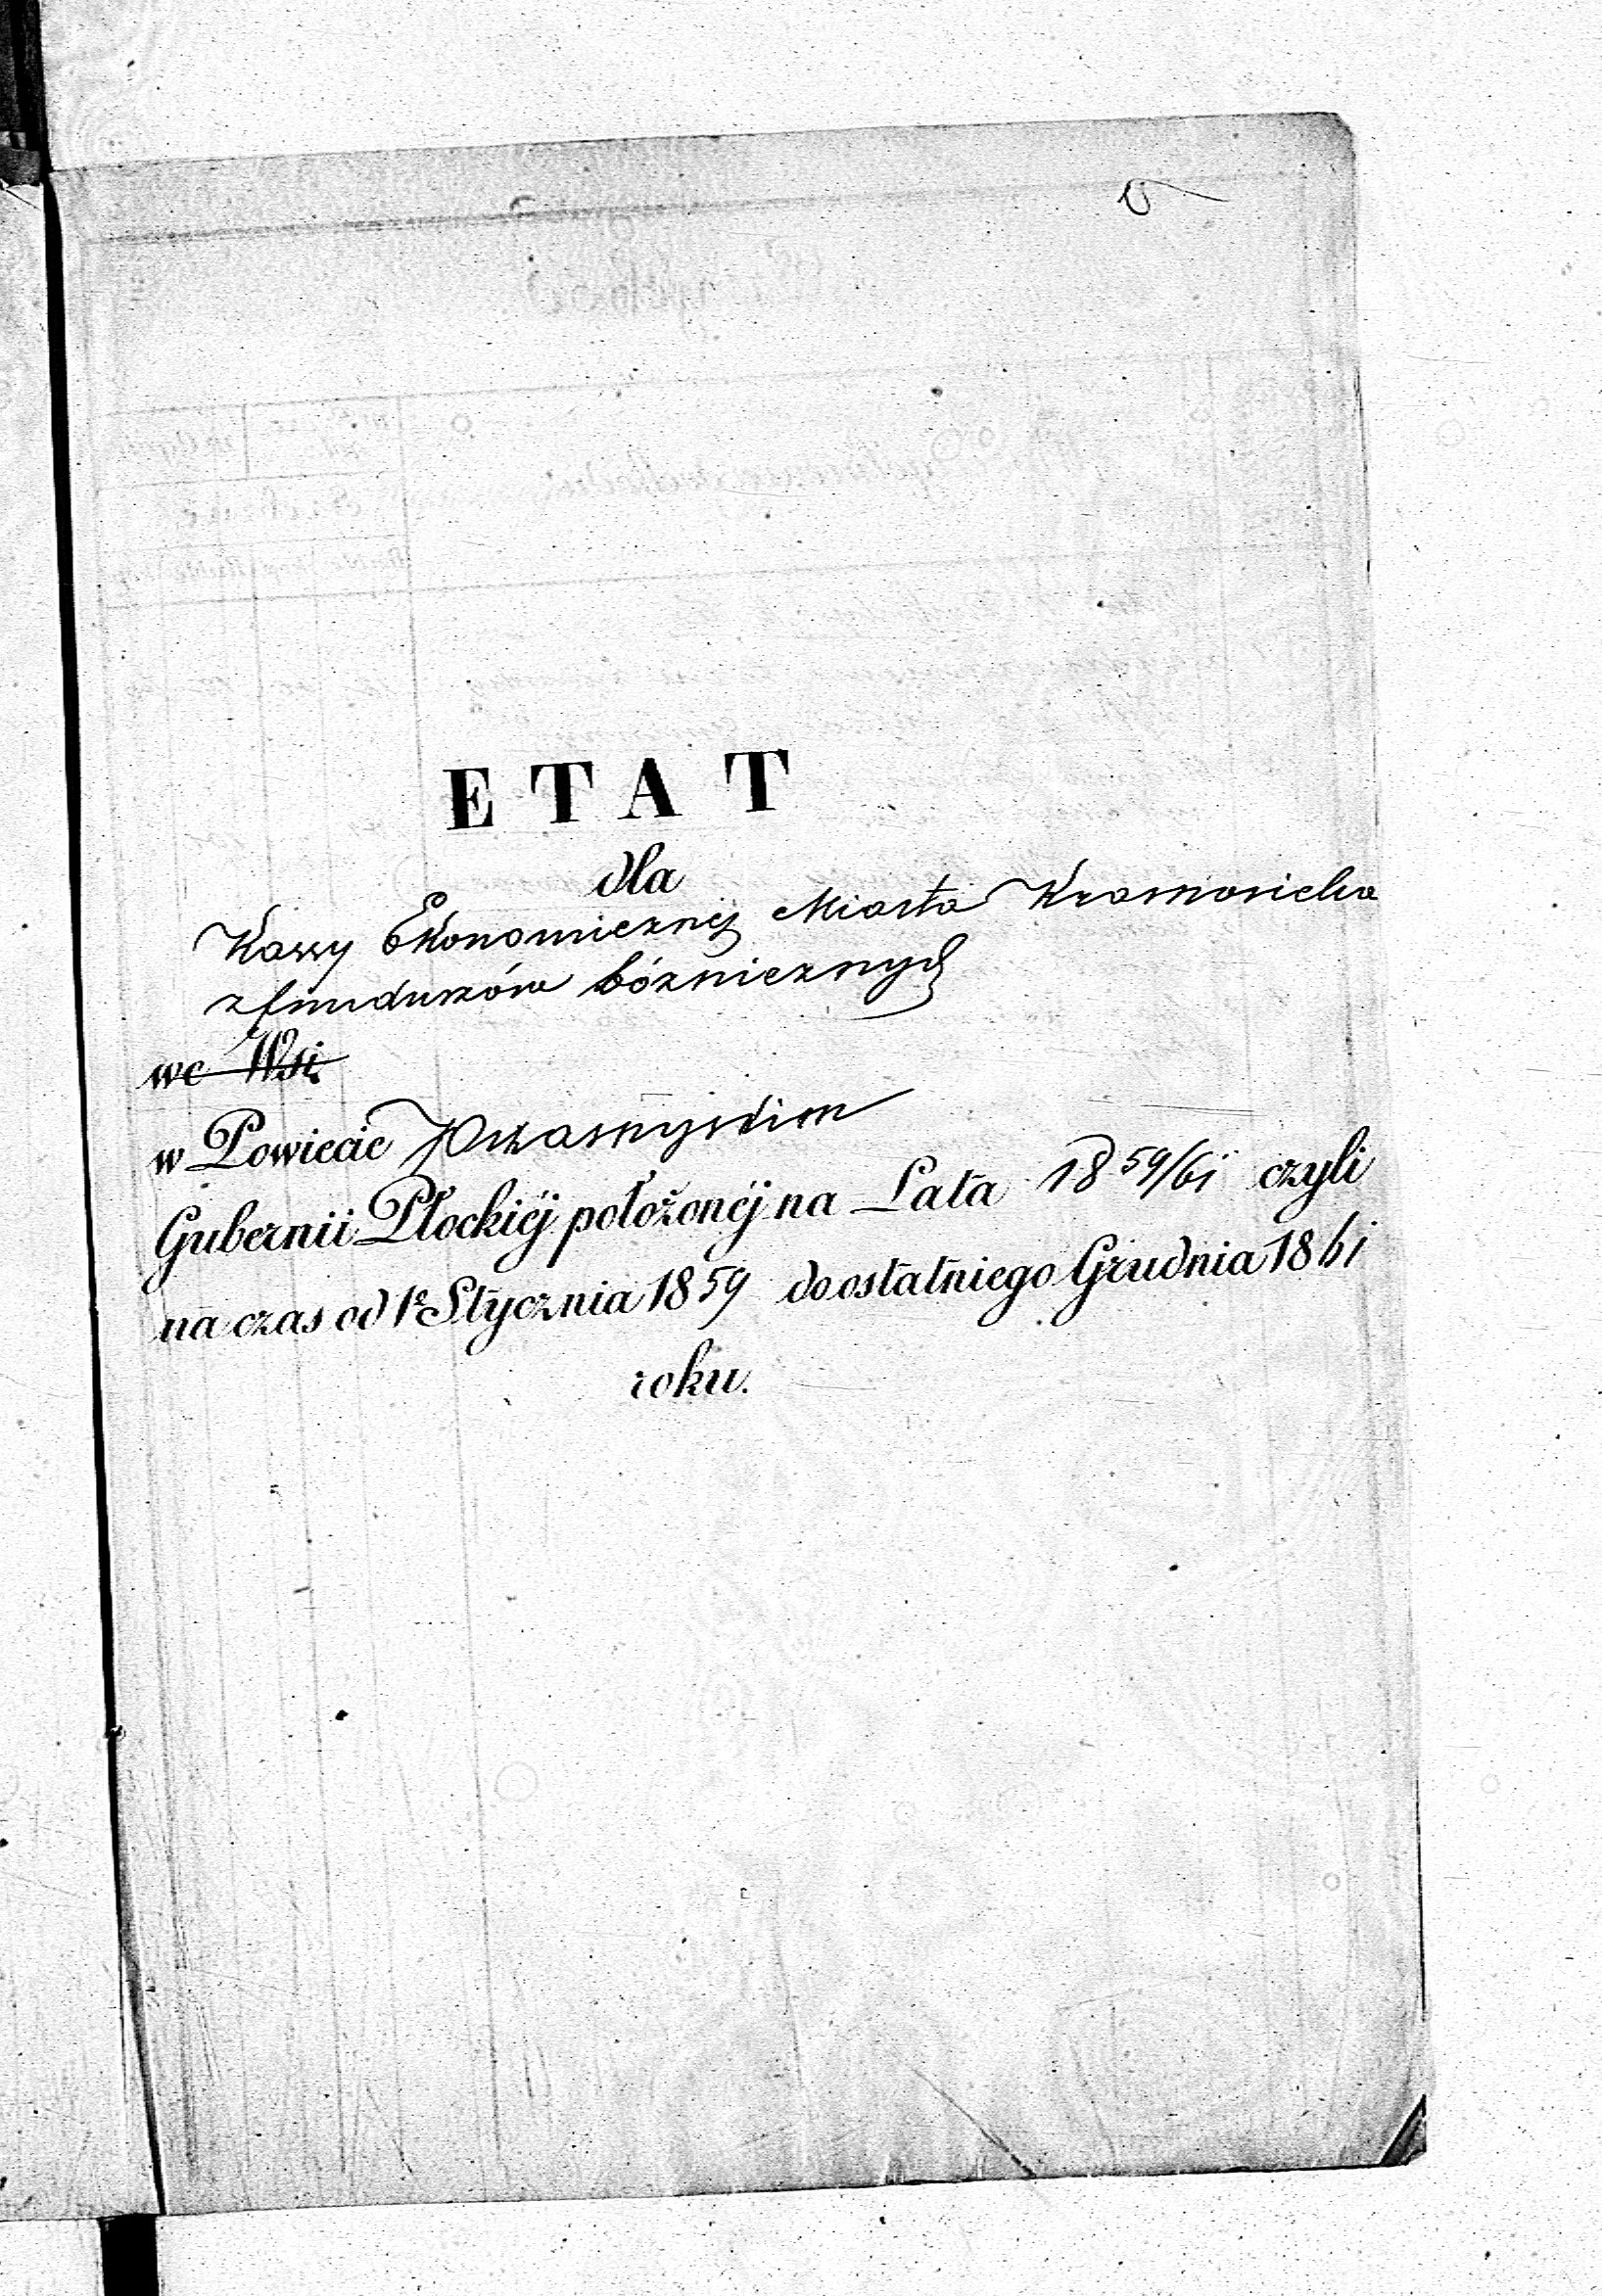 ETAT
dla
Kassy Ekonomicznéj Miasta Krasnosielca
z funduszów bóżnicznych
we Wsi
w Powiecie Przasnyskim
Gubernii Płockiéj położonéj na Lata 1859/61 czyli
na czas od 1º Stycznia 1859 do ostatniego Grudnia 1861
roku.